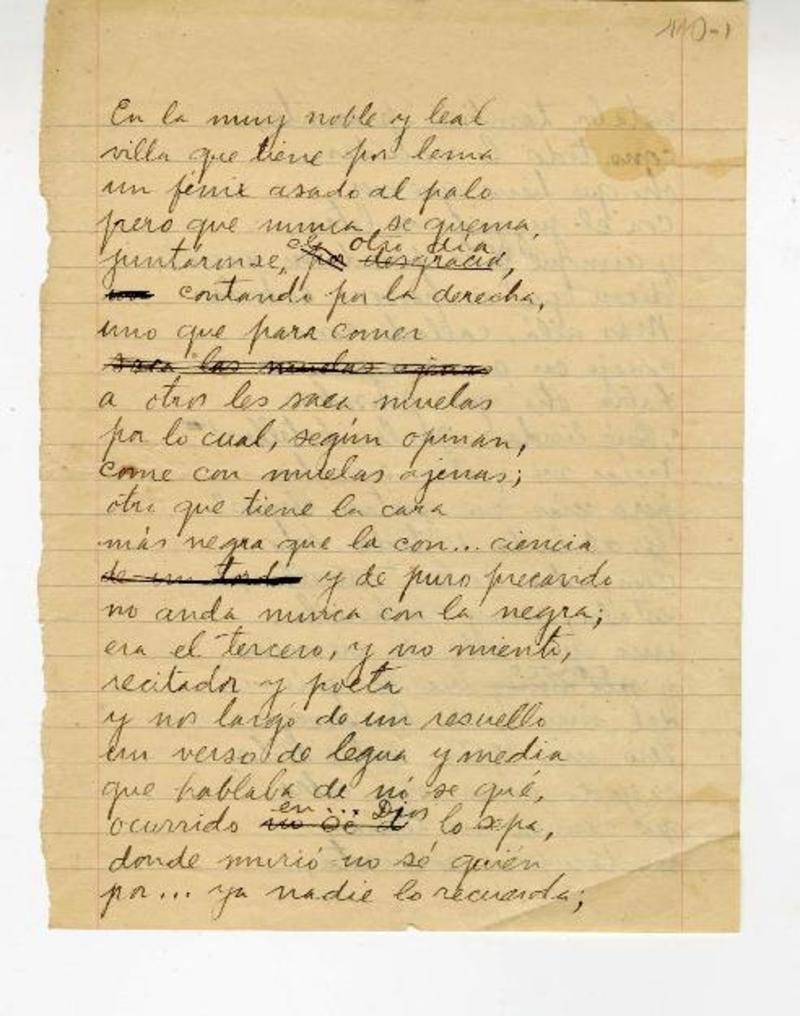 110-1
En la muy noble y leal
villa que tiene por lema
un fénix asado al palo
pero que nunca se quema,
juntáronse, el otro día
por desgracia,
contando por la derecha,
uno que para comer
saca las muelas ajenas
a otros les saca muelas
por lo cual, según opinan,
come con muelas ajenas;
otro que tiene la cara
más negra que la con... ciencia
de un tordo y de puro precavido
no anda nunca con la negra;
era el tercero, y no miento,
recitador y poeta
y nos largó de un resuello
un verso de legua y media
que hablaba de nó se qué,
en... Dios
ocurrido no se lo sepa,
donde murió no sé quién
por... ya nadie lo recuerda;